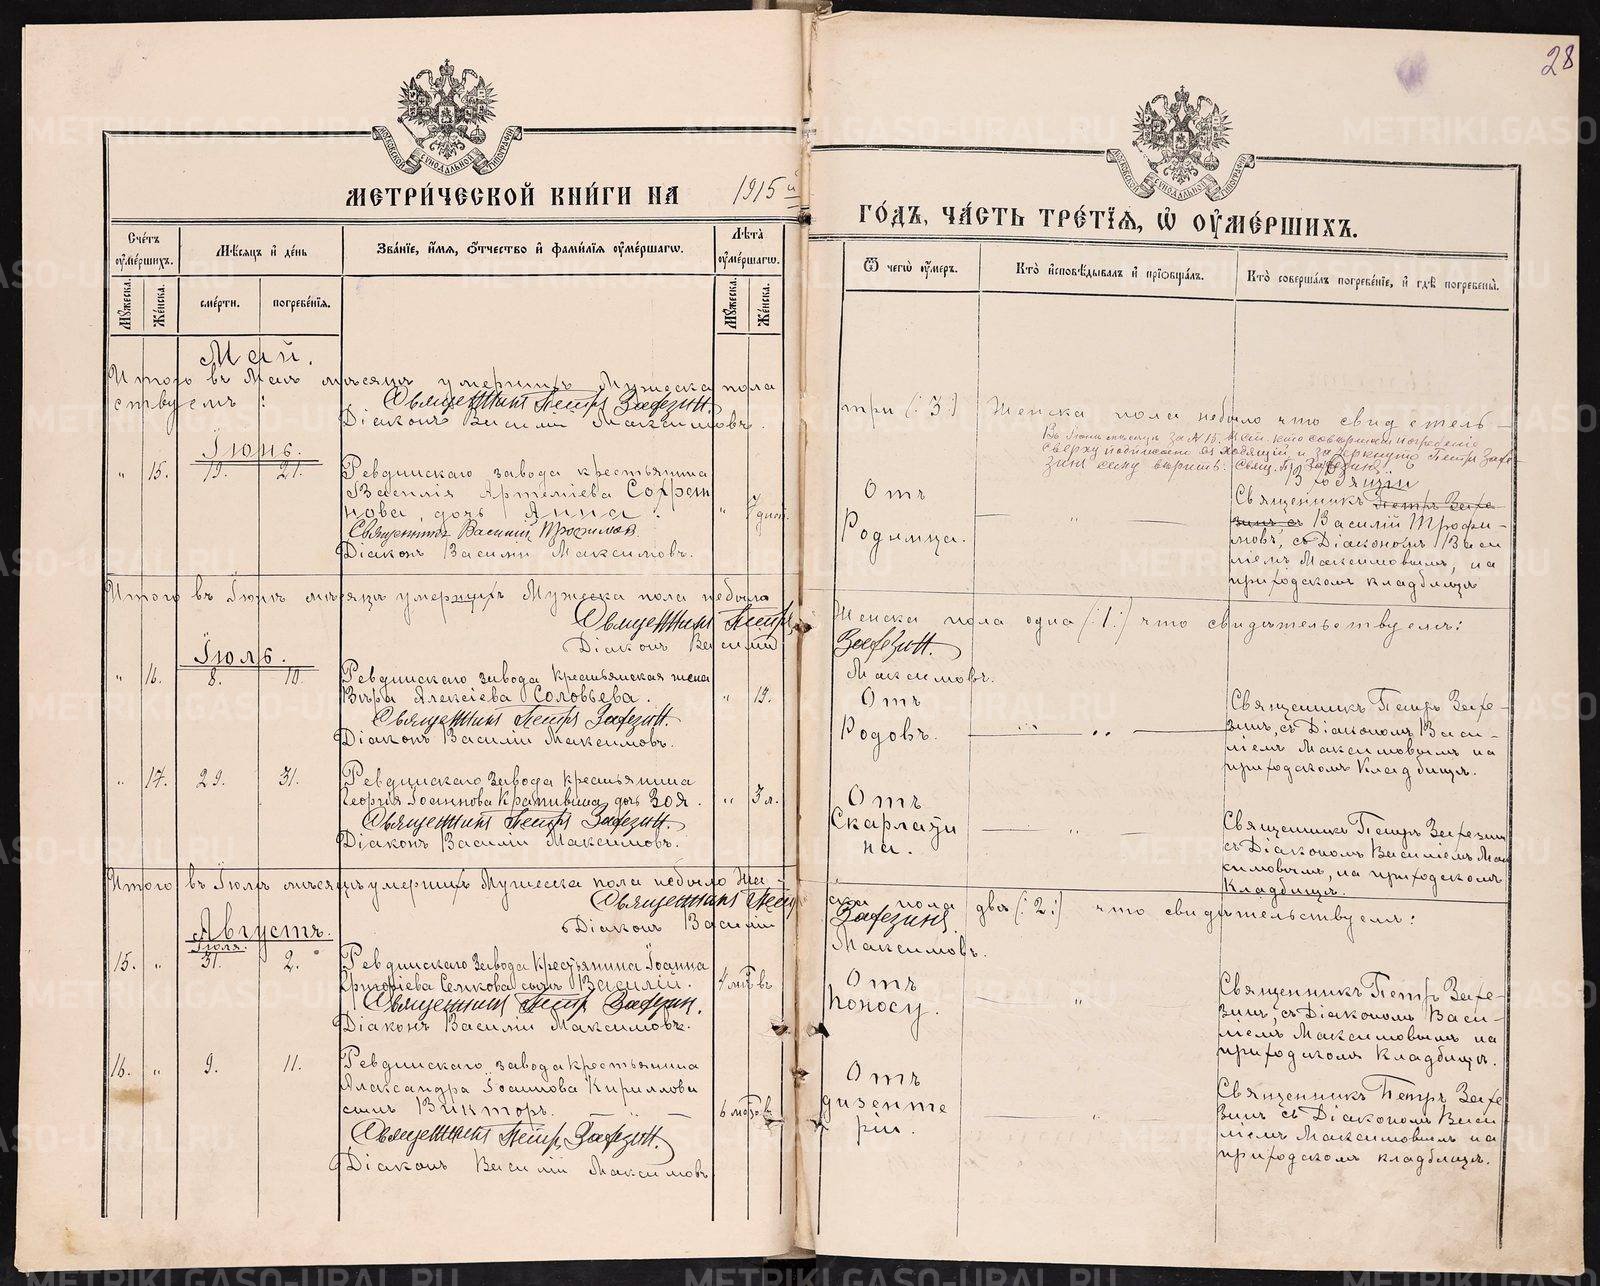 28
МЕТРИ́ЧЕСКОЙ КНИ́ГИ НА 1915й
ГО́ДЪ, ЧА́СТЬ ТРЕ́ТЇѦ, Ѡ҆ ОУ҆МЕ́РШИХЪ.
Сче́тъ оумершихъ.
Мѣсяцъ и день
Зва́нїе, и҆́мѧ, ѻ҆́тчество и҆ фами́лїѧ оу҆ме́ршагѡ.
Лѣта̀ оу҆ме́ршагѡ.
Мꙋжеска.
Женска.
сме́рти.
погребе́нїѧ.
Мꙋжеска.
Женска.
Ѿ чегѡ̀ оу҆́меръ.
Кто̀ и҆сповѣ́дывалъ и҆ прїѡбща́лъ.
Кто̀ соверша́лъ погребе́нїе, и҆ гдѣ̀ погребены̀.
Май.
Итого въ Маѣ мѣсяцѣ умершихъ Мужеска пола
три (: 3:) Женска пола небыло что свидѣтель-
ствуемъ:
Священникъ Петръ Зефезинъ.
Діаконъ Василій Максимовъ.
Іюнь.
" 15. 19. 21.
Ревдинскаго завода крестьянина
Василія Артеміева
дочь Анна.
" 7 дней.
Священникъ Василій Трофимовъ
Діаконъ Василій Максимовъ.
Отъ
Родимца.
"
Священникъ Петръ Зефе-
зинъ съ Василій Трофи-
мовъ, съ Діакономъ Васи
ліемъ Максимовымъ, на
приходскомъ кладбищѣ
Итого въ Іюнѣ мѣсяцѣ умершихъ Мужеска пола небыло
Женска пола одна (: 1:) что свидѣтельствуемъ:
Священникъ Петръ Зефезинъ.
Діаконъ Василій Максимовъ.
Іюль.
" 16. 8. 10.
Ревдинскаго завода крестьянская жена
Вѣра Алексіева Соловьева.
" 19.
Священникъ Петръ Зефезинъ.
Діаконъ Василій Максимовъ.
Отъ
Родовъ.
"
Священникъ Петръ Зефе-
зинъ, съ Діакономъ Васи-
ліемъ Максимовымъ на
приходскомъ кладбищѣ.
" 17. 29. 31.
Ревдинскаго завода крестьянина
Георгія Іоаннова Крапивина дочь Зоя.
" 3 л.
Священникъ Петръ Зефезинъ.
Діаконъ Василій Максимовъ.
Отъ
Скарлати
на.
"
Священникъ Петръ Зефезинъ
съ Діакономъ Василіемъ Мак
симовымъ, на приходскомъ
кладбищѣ.
Итого въ Іюлѣ мѣсяцѣ умершихъ Мужеска пола небыло Жен-
ска пола двѣ (: 2:) что свидѣтельствуемъ:
Священникъ Петръ Зефезинъ.
Діаконъ Василій Максимовъ.
Августъ.
Іюля.
15. " 31. 2.
Ревдинскаго завода крестьянина Іоанна
Григоріева сынъ Василій.
4 мѣс
Священникъ Петръ Зефезин.
Діаконъ Василій Максимовъ.
Отъ
поносу.
"
Священникъ Петръ Зефе-
зинъ, съ Діакономъ Васи-
ліемъ Максимовымъ на
приходскомъ кладбищѣ.
16. " 9. 11.
Ревдинскаго завода крестьянина
Александра Іоаннова Кириллова
сынъ Викторъ.
6
Священникъ Петръ Зефезинъ.
Діаконъ Василій Максимовъ
Отъ
дизенте
ріи.
"
Священникъ Петръ Зефе
зинъ съ Діакономъ Васи
ліемъ Максимовымъ на
приходскомъ кладбищѣ.
METRIKI.GASO-URAL.RU